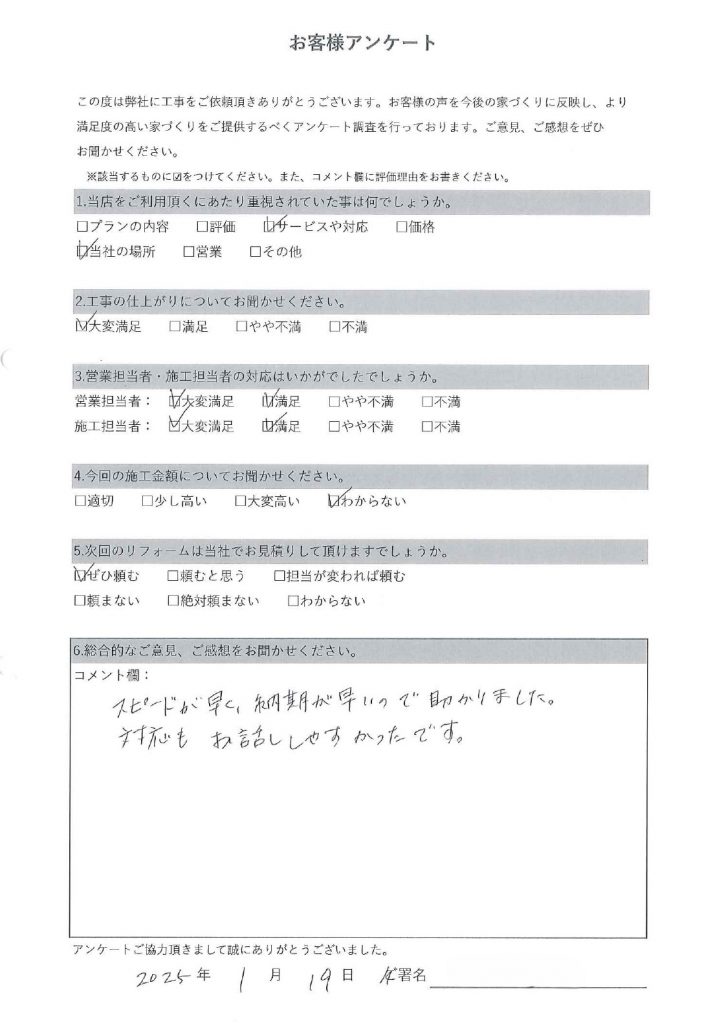 お客様アンケート
この度は弊社に工事をご依頼頂きありがとうございます。お客様の声を今後の家づくりに反映し、より
満足度の高い家づくりをご提供するべくアンケート調査を行っております。ご意見、ご感想をぜひ
お聞かせください。
※該当するものに☑をつけてください。また、コメント欄に評価理由をお書きください。
1.当店をご利用頂くにあたり重視されていた事は何でしょうか。
☐プランの内容 ☐評価 ☑サービスや対応 ☐価格
☑当社の場所 ☐営業 ☐その他
2.工事の仕上がりについてお聞かせください。
☑大変満足 ☐満足 ☐やや不満 ☐不満
3.営業担当者・施工担当者の対応はいかがでしたでしょうか。
営業担当者： ☑大変満足 ☑満足 ☐やや不満 ☐不満
施工担当者： ☑大変満足 ☑満足 ☐やや不満 ☐不満
4.今回の施工金額についてお聞かせください。
☐適切 ☐少し高い ☐大変高い ☑わからない
5.次回のリフォームは当社でお見積りして頂けますでしょうか。
☑ぜひ頼む ☐頼むと思う ☐担当が変われば頼む
☐頼まない ☐絶対頼まない ☐わからない
6.総合的なご意見、ご感想をお聞かせください。
コメント欄：
スピードが早く、納期が早いので助かりました。
対応も お話ししやすかったです。
アンケートご協力頂きまして誠にありがとうございました。
2025年 1月 19日 署名